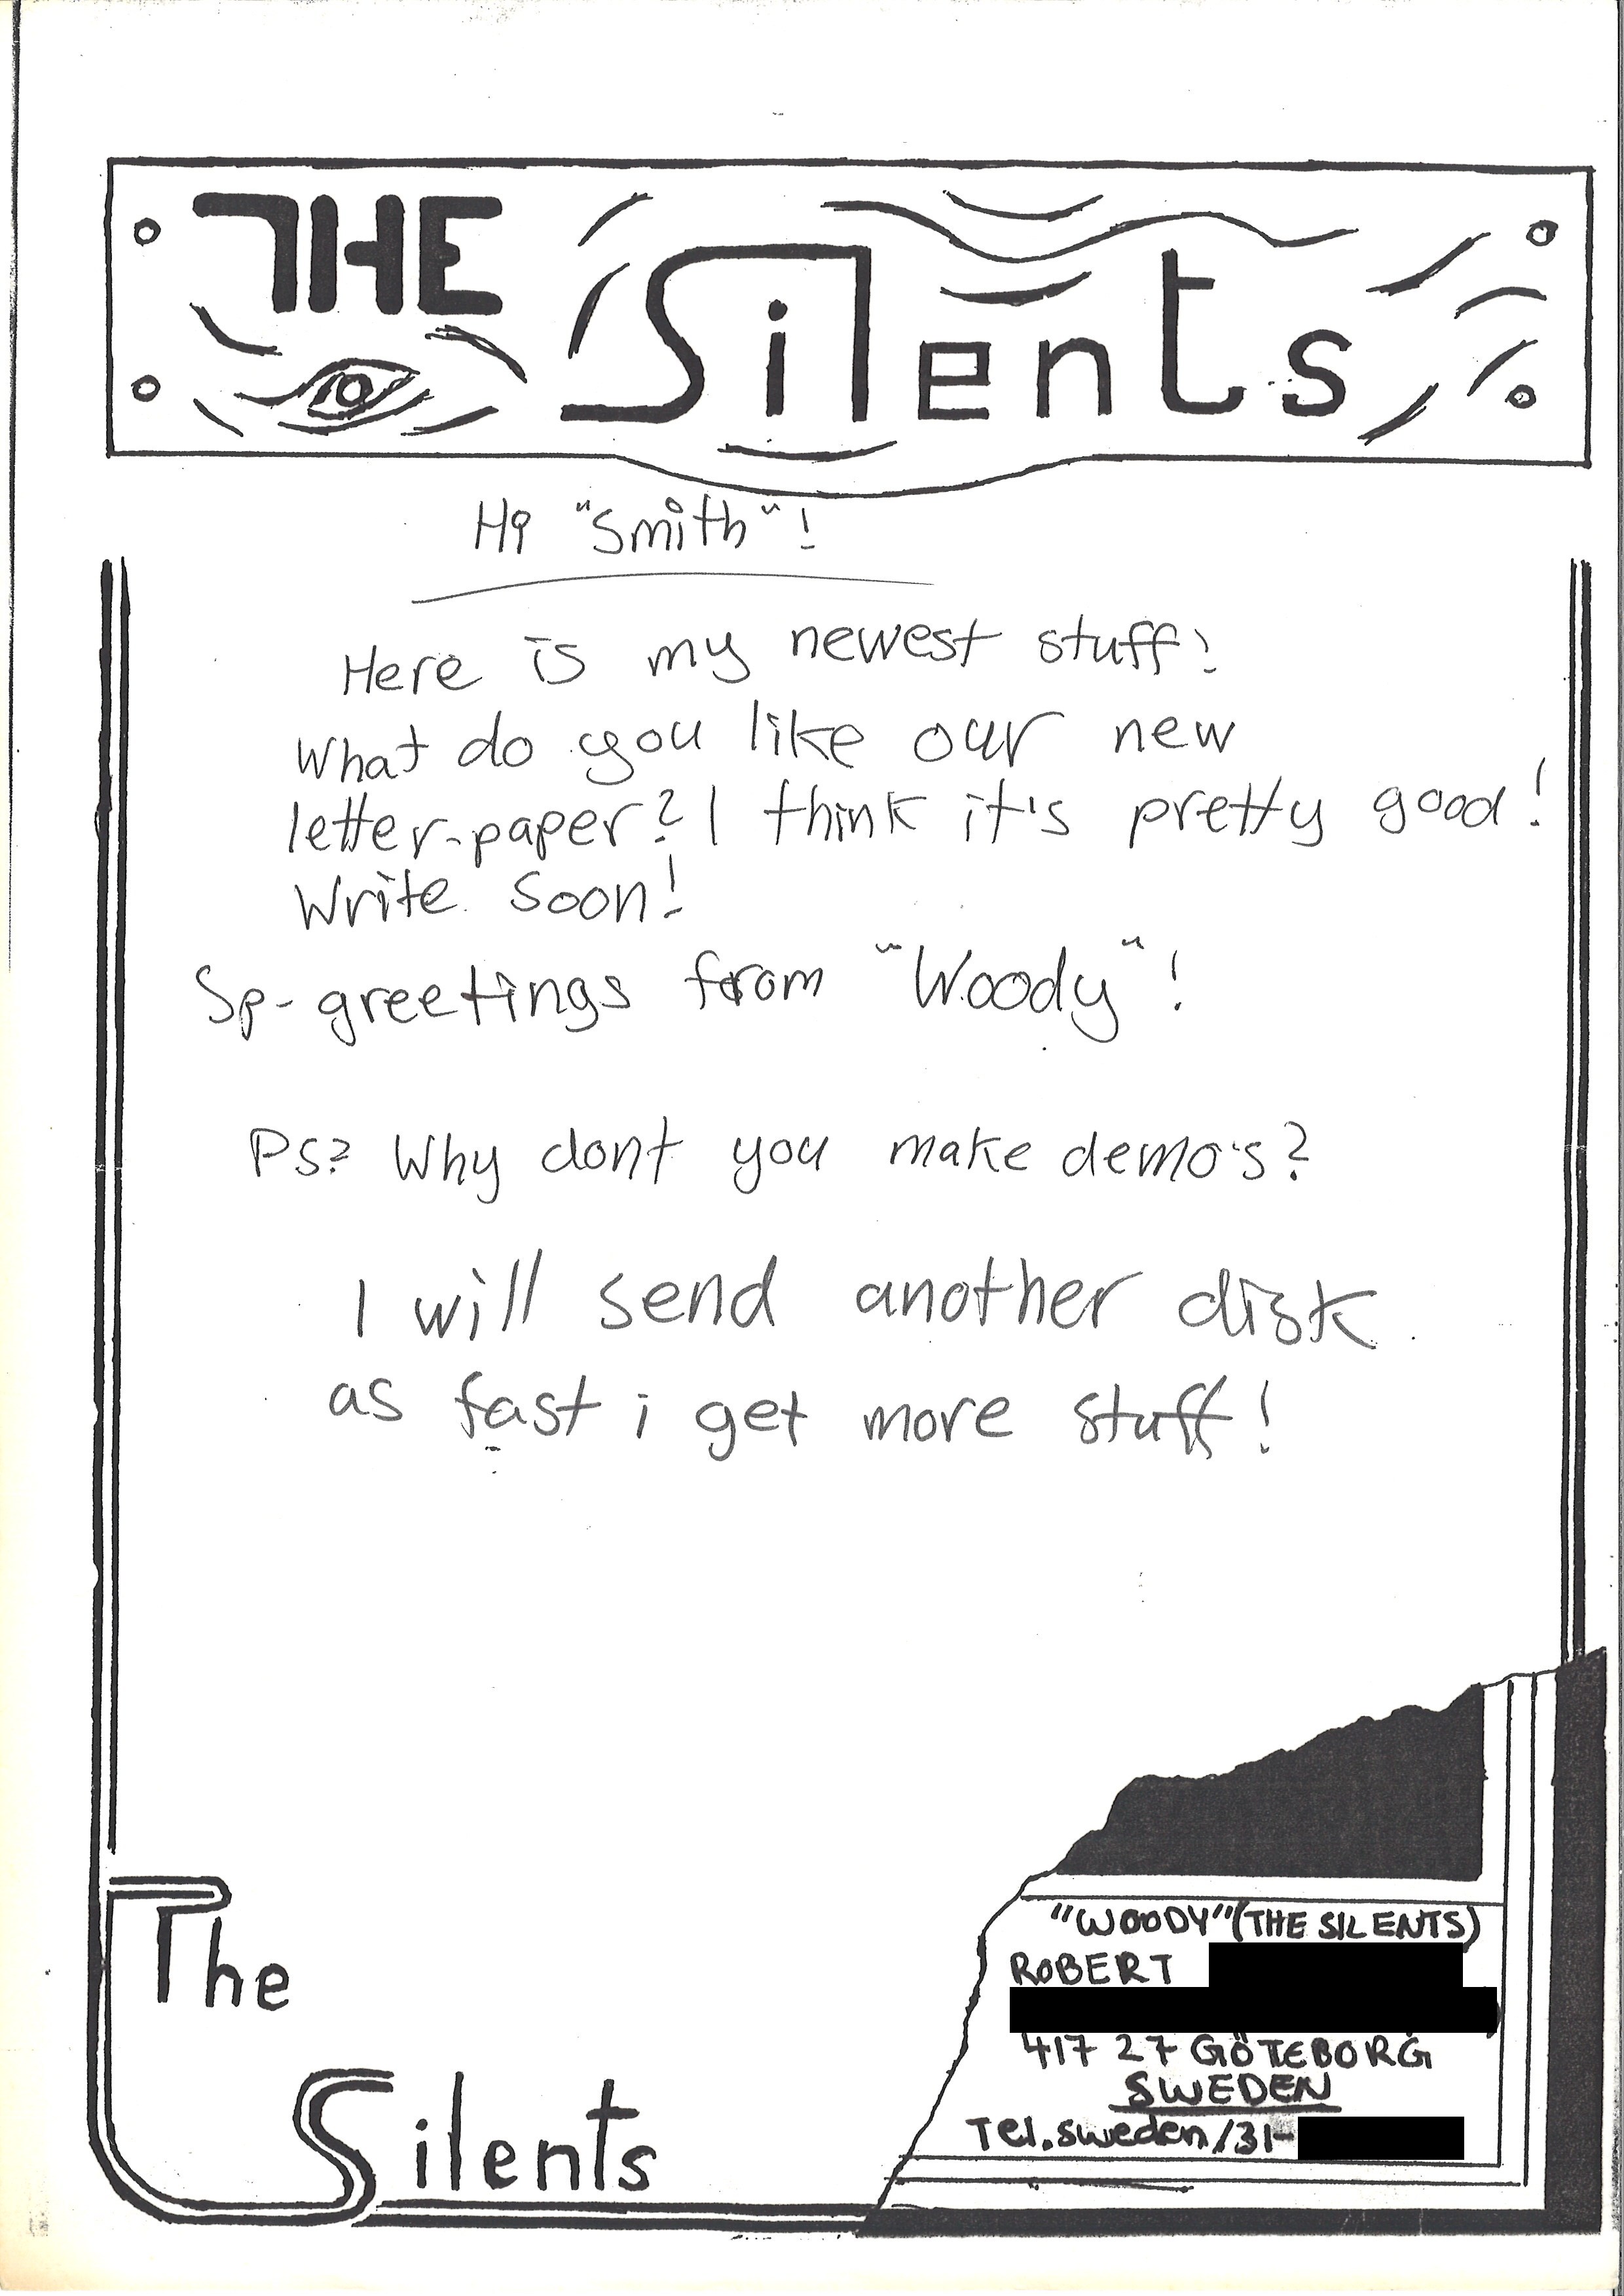 THE Silents
Hi "Smith"!
Here is my newest stuff!
What do you like our new
letter-paper? I think it's pretty good!
Write soon!
Sp-greetings from "Woody"!
Ps? Why dont you make demo's?
I will send another disk
as fast i get more stuff!
The
Silents
"WOODY" (THE SILENTS)
ROBERT
417 27 GÖTEBORG
SWEDEN
Tel. sweden/31-